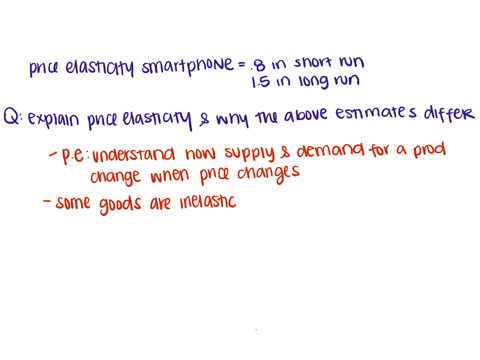 price elasticity smartphone = .8 in short run
1.5 in long run
Q: explain price elasticity & why the above estimates differ
- p.e: understand how supply & demand for a prod
change when price changes
- some goods are inelastic